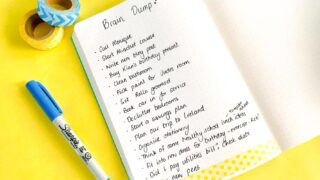 Brain Dump
· Call Monique
· Start Mindset course
· Write new blog post
· Buy Kian's birthday present
· Clean bathroom
· Pick paint for Jude's room
· Get Rollo groomed
· Book car in for service
· Declutter bedrooms
· Start a savings plan
· Plan our trip to Iceland
· Organise stationery
· Think of some healthy school lunch ideas
· Fit into my dress for birthday - exercise
· Did I pay utilities bill? Check dates
new pens
Sharpie